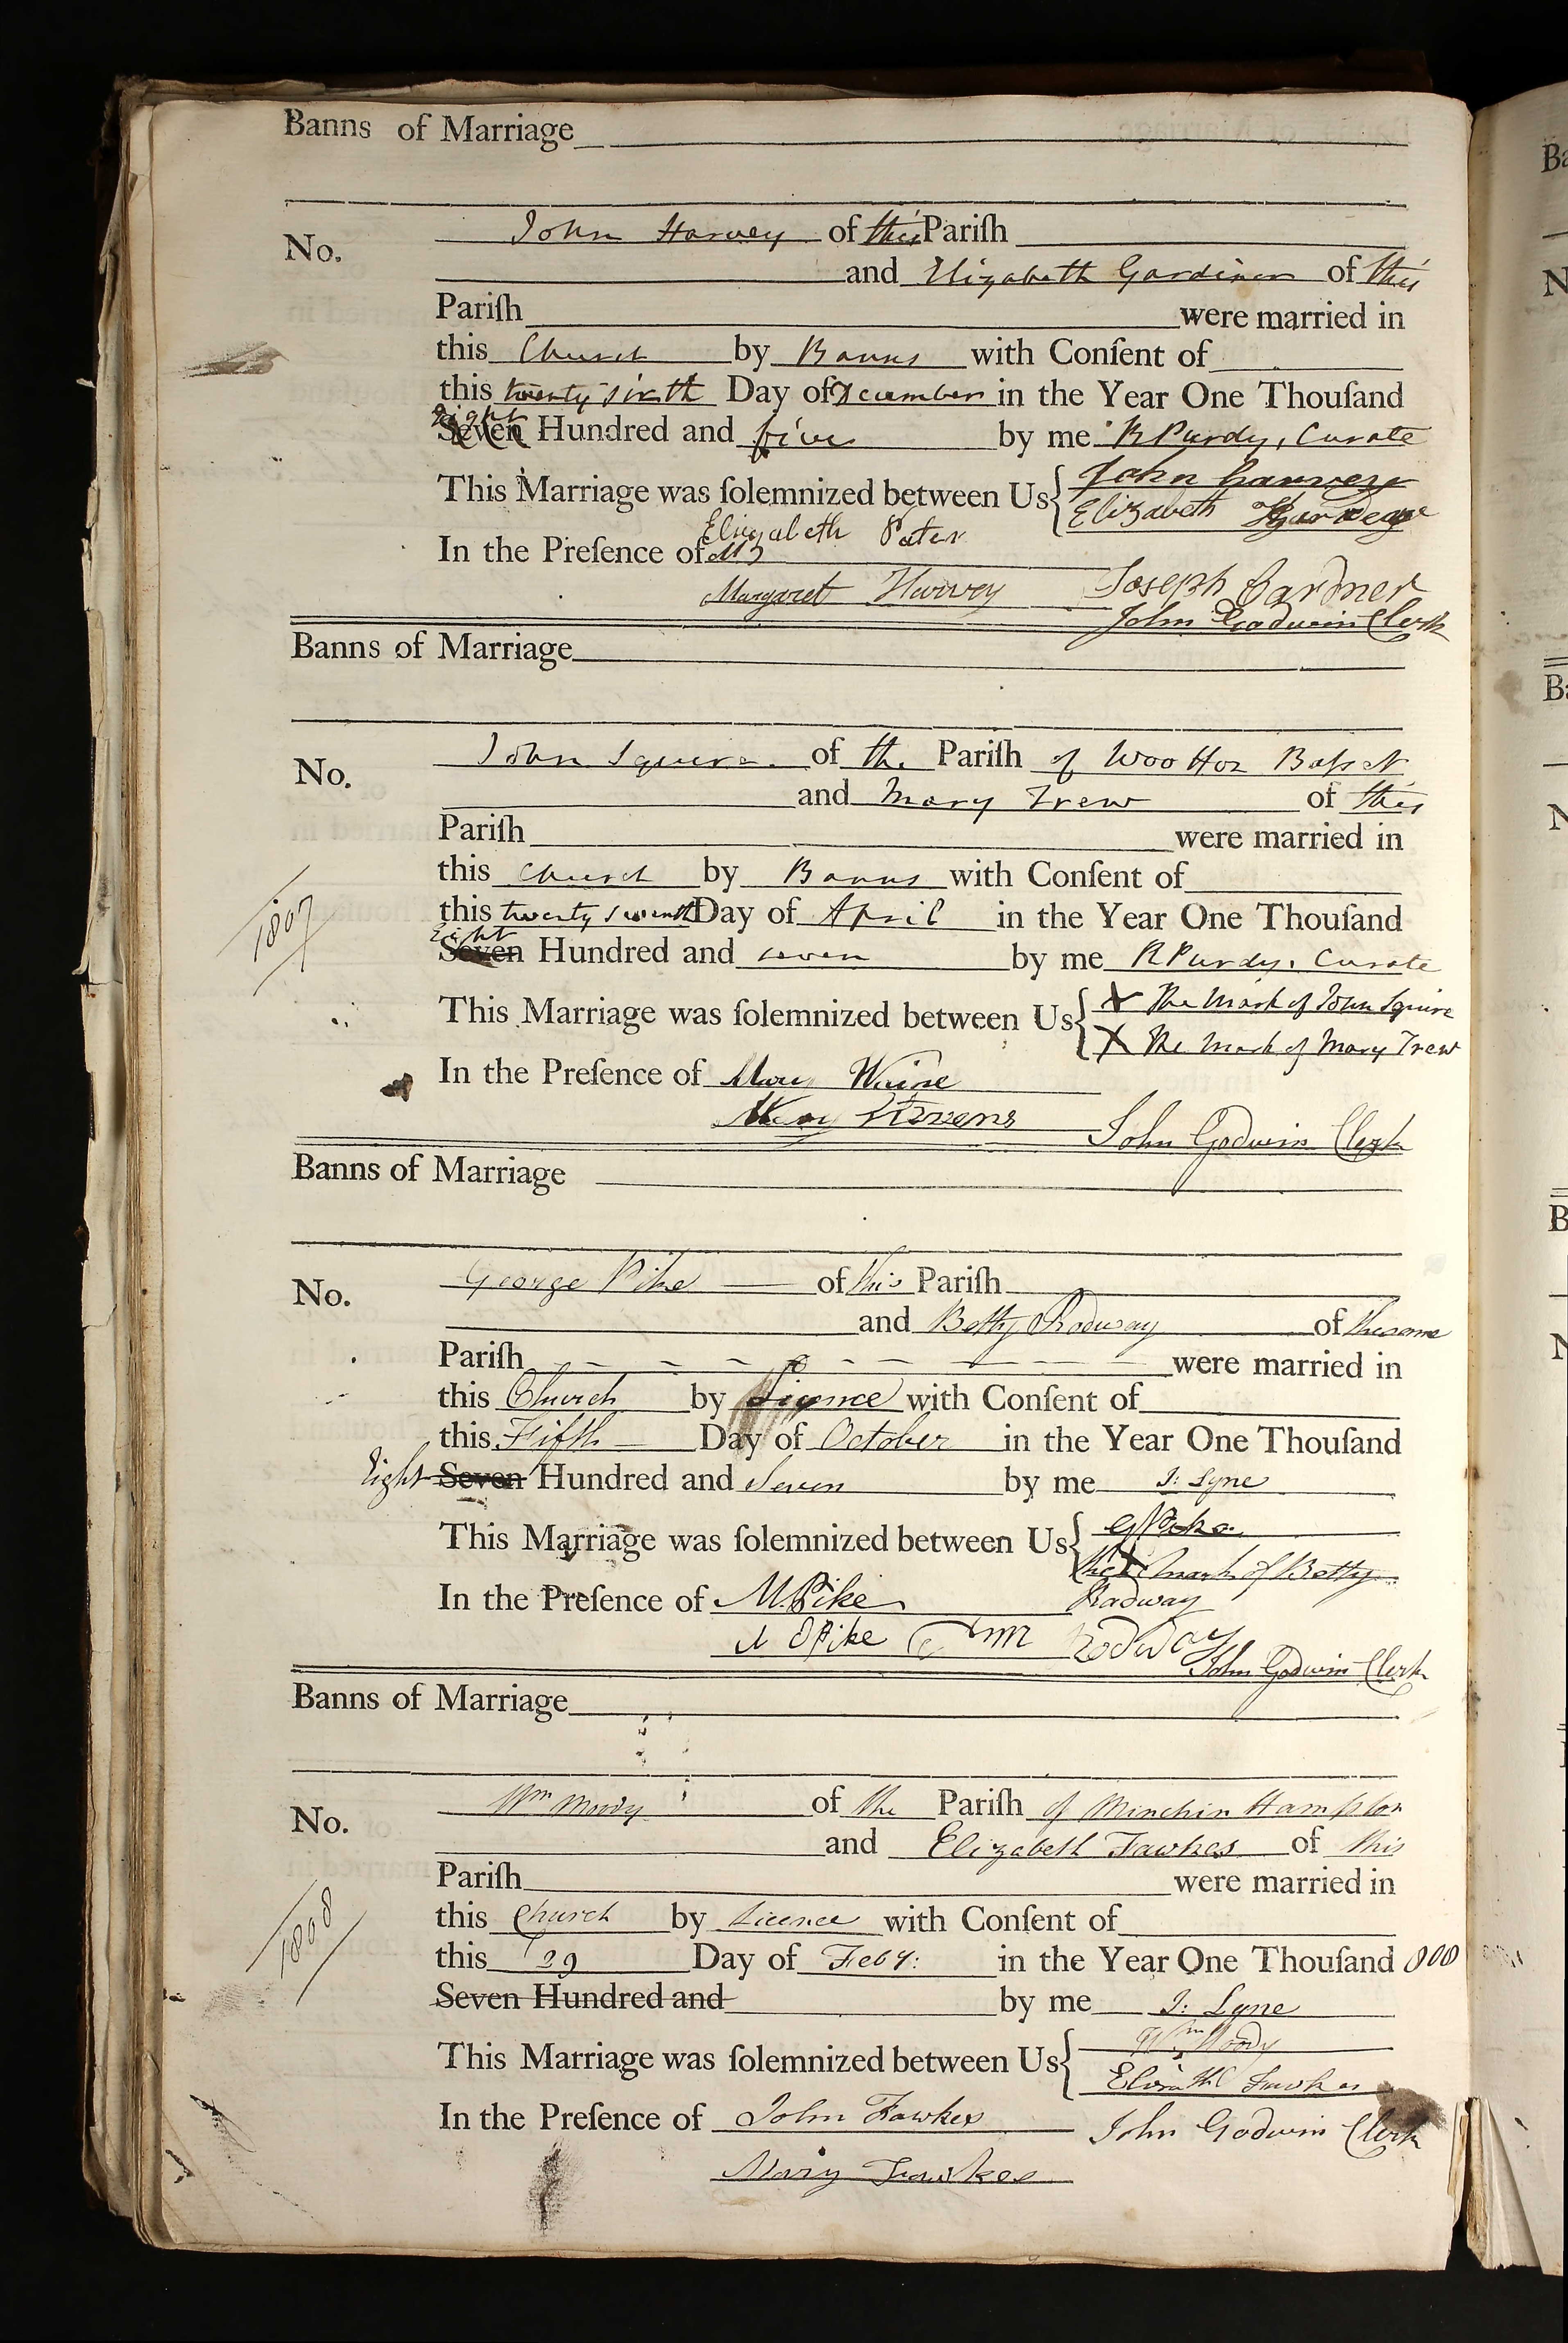 Banns of Marriage
No. John Harvey of this Pariſh
and Elizabeth Gardiner of this
Pariſh were married in
this Church by Banns with Conſent of
this twenty sixth Day of December in the Year One Thouſand
Eight
Seven Hundred and five by me R Purdy, Curate
This Marriage was ſolemnized between Us John harvey
Elizabeth
Elizabeth
In the Preſence of
Margaret Harvey Joseph Gardner
John Godwin Clerk
Banns of Marriage
No. John Squire of the Pariſh of Wootton Baſset
and Mary Trew of this
Pariſh were married in
this Church by Banns with Conſent of
1807
this twenty seventh Day of April in the Year One Thouſand
Eight
Seven Hundred and seven by me R Purdy, Curate
This Marriage was ſolemnized between Us X The Mark of John Squire
X The Mark of Mary Trew
In the Preſence of
Stevens John Godwin Clerk
Banns of Marriage
No. George Pike of this Pariſh
and Betty Radway of the same
Pariſh were married in
this Church by Licence with Conſent of
this Fifth Day of October in the Year One Thouſand
Eight Seven Hundred and Seven by me J: Lyne
This Marriage was ſolemnized between Us G Pike
the X mark of Betty
In the Preſence of M. Pike Radway
Pike Rodway
John Godwin Clerk
Banns of Marriage
No. Wm Moody of the Pariſh of Minchin Hampton
and Elizabeth Fawkes of this
Pariſh were married in
1808
this Church by Licence with Conſent of
this 29 Day of Feby: in the Year One Thouſand 808
Seven Hundred and by me J: Lyne
This Marriage was ſolemnized between Us Wm Moody
Fawkes
In the Preſence of John Fawkes John Godwin Clerk
Mary Fawkes